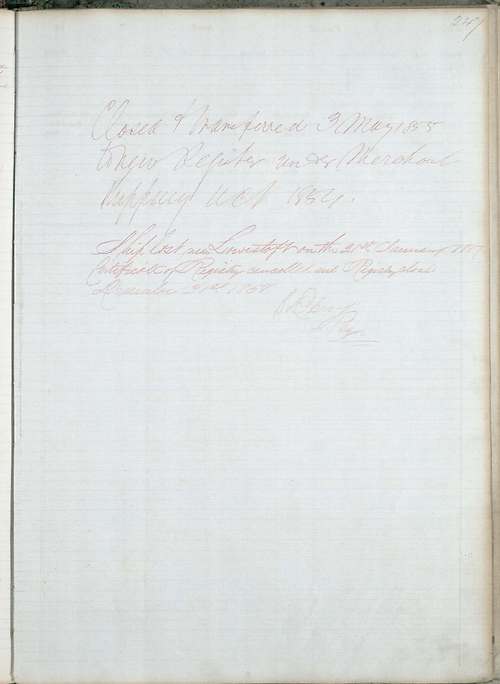 247
Closed & transferred 3 May 1855
to new Register under Merchant
Shipping Act 1854.
Ship lost near Lowestoft on the 21st January
Certificate of Registry cancelled and Registry closed
December 31st